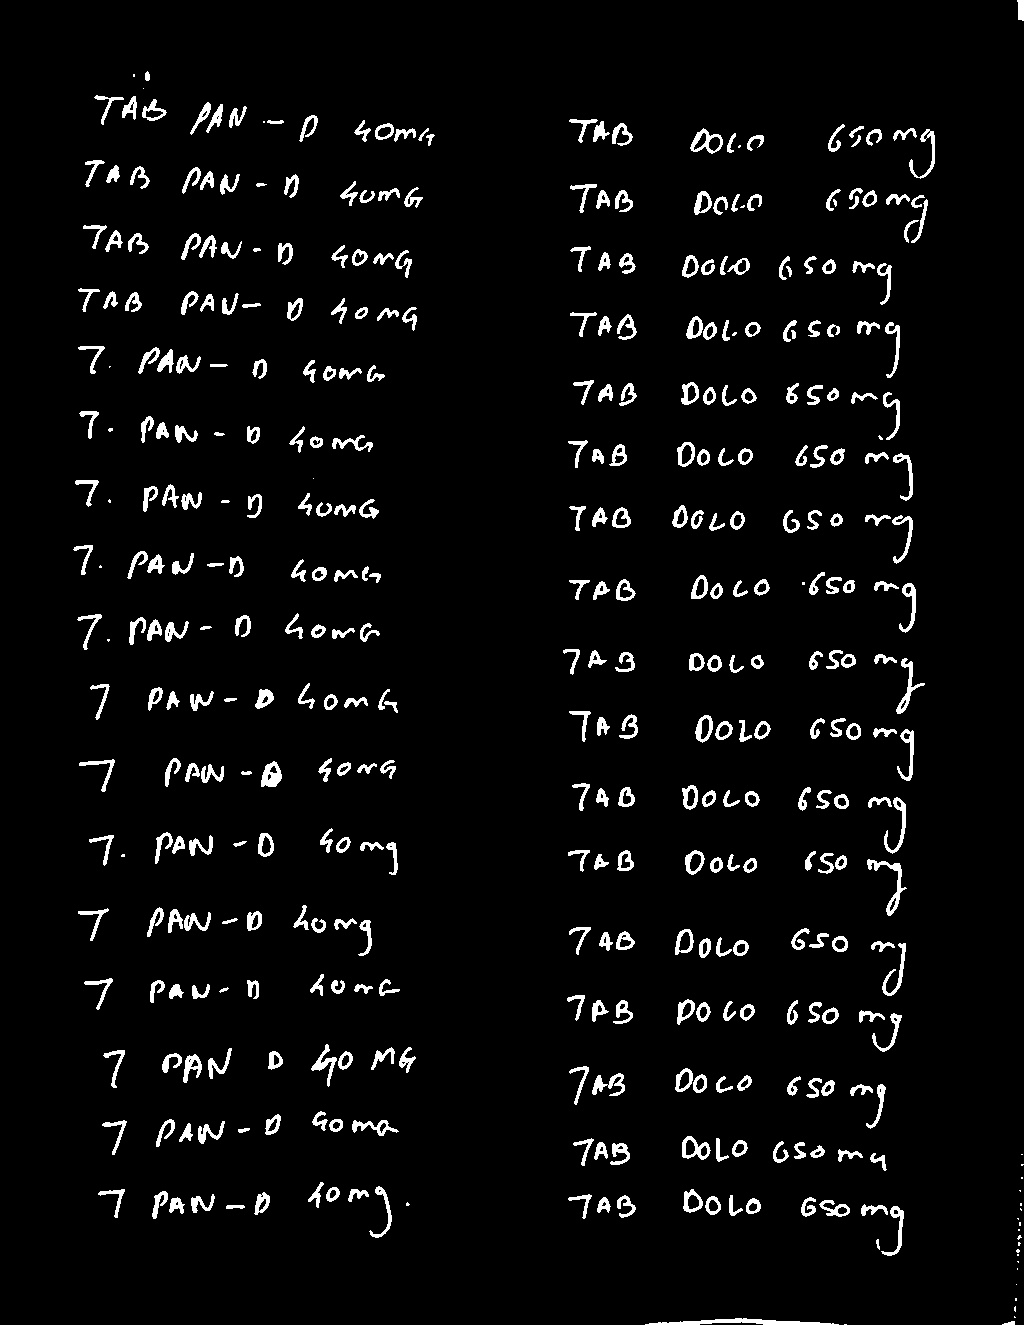 TAB PAN - D 40MG
TAB PAN - D 40MG
TAB PAN - D 40MG
TAB PAN - D 40MG
T. PAN - D 40MG
T. PAN - D 40MG
T. PAN - D 40MG
T. PAN - D 40MG
T. PAN - D 40MG
T PAN - D 40MG
T PAN - D 40MG
T. PAN - D 40mg
T PAN - D 40mg
T PAN - D 40MG
T PAN D 40 MG
T PAN - D 40MG
T PAN - D 40mg.
TAB DOLO 650mg
TAB DOLO 650mg
TAB DOLO 650 mg
TAB DOLO 650 mg
TAB DOLO 650 mg
TAB DOLO 650 mg
TAB DOLO 650 mg
TAB DOLO 650 mg
TAB DOLO 650 mg
TAB DOLO 650 mg
TAB DOLO 650 mg
TAB DOLO 650 mg
TAB DOLO 650 mg
TAB DOLO 650 mg
TAB DOLO 650 mg
TAB DOLO 650 mg
TAB DOLO 650 mg